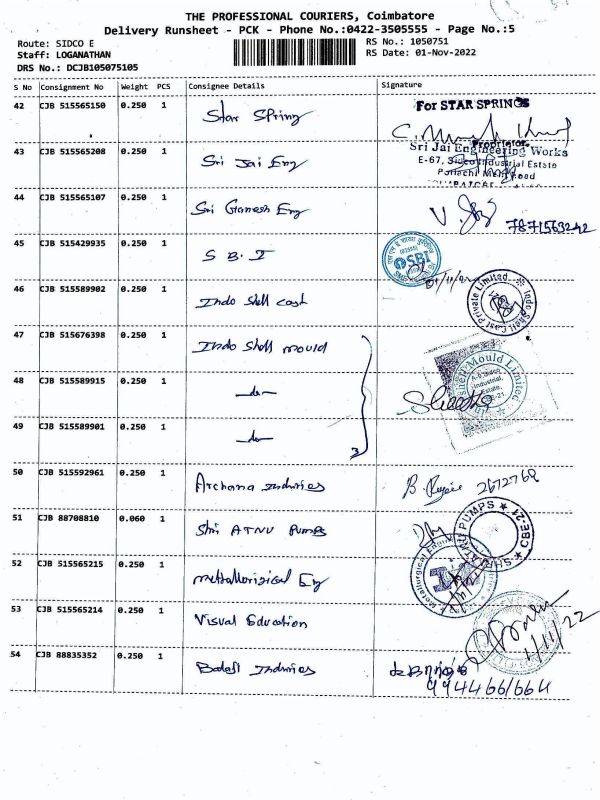 THE PROFESSIONAL COURIERS, Coimbatore
Delivery Runsheet - PCK - Phone No.:0422-3505555 - Page No.:5
Route: SIDCO E
RS No.: 1050751
Staff: LOGANATHAN
RS Date: 01-Nov-2022
DRS No.: DCJB105075105
S No Consignment No Weight PCS Consignee Details Signature
42 CJB 515565150 0.250 1 Star Spring
For STAR SPRINGS
Proprietor
43 CJB 515565208 0.250 1 Sri Jai Eng
Sri Jai Engineering Works
E-67, Sidco Industrial Estate
Road
44 CJB 515565107 0.250 1 Sri Ganesh Eng
7871563242
45 CJB 515429935 0.250 1 S B. I
SBI
01/11/22
46 CJB 515589902 0.250 1 Indo Shell Cast
Indo Shell Cast Private Limited
47 CJB 515676398 0.250 1 Indo Shell mould
Shell Mould Limited
48 CJB 515589915 0.250 1 -do-
49 CJB 515589901 0.250 1 -do-
50 CJB 515592961 0.250 1 Archana Indries
2672768
51 CJB 88708810 0.060 1 Shri ATNU Pumps
PUMPS ★ CBE-21 ★
52 CJB 515565215 0.250 1 Metallorizical Eng
53 CJB 515565214 0.250 1 Visual Education
1/11/22
54 CJB 88835352 0.250 1 Balaji Indries
994466/664